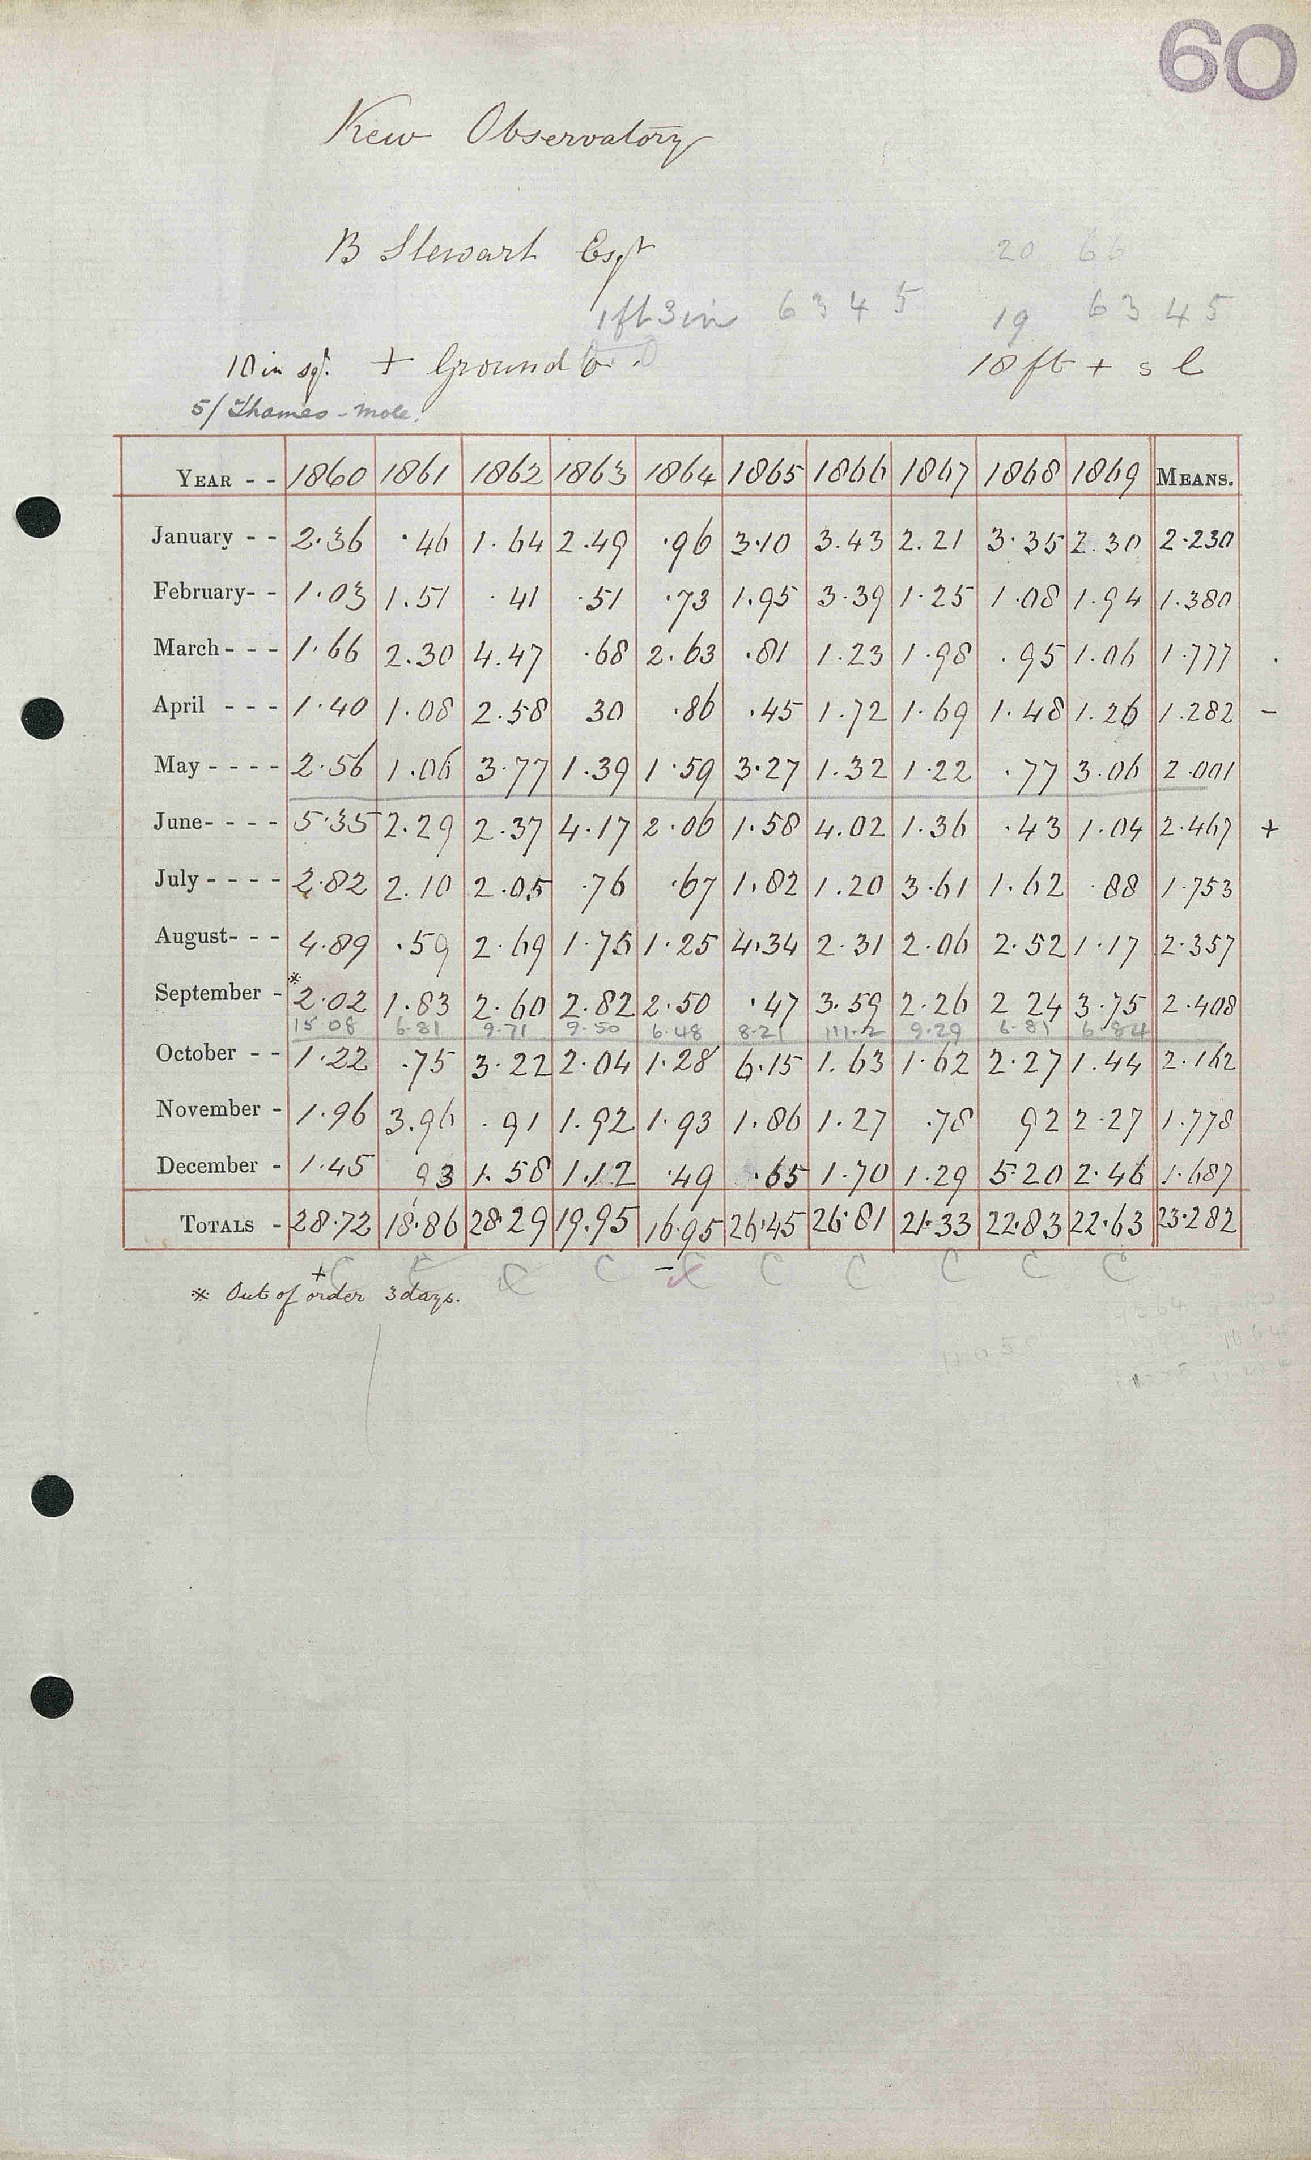 60
Kew Observatory
B Stewart Esqr
20 66
1ft 3in 6 3 4 5 19 6 3 4 5
10 in sq. + Ground 18 ft + s l
5/ Thames - Mole.
YEAR - - 1860 1861 1862 1863 1864 1865 1866 1867 1868 1869 MEANS.
January - - 2.36 .46 1.64 2.49 .96 3.10 3.43 2.21 3.35 2.30 2.230
February- - 1.03 1.51 .41 .51 .73 1.95 3.39 1.25 1.08 1.94 1.380
March - - - 1.66 2.30 4.47 .68 2.63 .81 1.23 1.98 .95 1.06 1.777 .
April - - - 1.40 1.08 2.58 30 .86 .45 1.72 1.69 1.48 1.26 1.282 -
May - - - - 2.56 1.06 3.77 1.39 1.59 3.27 1.32 1.22 .77 3.06 2.001
June- - - - 5.35 2.29 2.37 4.17 2.06 1.58 4.02 1.36 .43 1.04 2.467 +
July - - - - 2.82 2.10 2.05 .76 .67 1.82 1.20 3.61 1.62 .88 1.753
August- - - 4.89 .59 2.69 1.75 1.25 4.34 2.31 2.06 2.52 1.17 2.357
September - *2.02 1.83 2.60 2.82 2.50 .47 3.59 2.26 2 24 3.75 2.408
15.08 6.81 9.71 9.50 6.48 8.21 11.12 9.29 6.81 6.84
October - - 1.22 .75 3.22 2.04 1.28 6.15 1.63 1.62 2.27 1.44 2.162
November - 1.96 3.96 .91 1.92 1.93 1.86 1.27 .78 92 2.27 1.778
December - 1.45 93 1.58 1.12 .49 .65 1.70 1.29 5.20 2.46 1.687
TOTALS - 28.72 18.86 28.29 19.95 16.95 26.45 26.81 21.33 22.83 22.63 23.282
+ C C C C C C C C C
* Out of order 3 days.